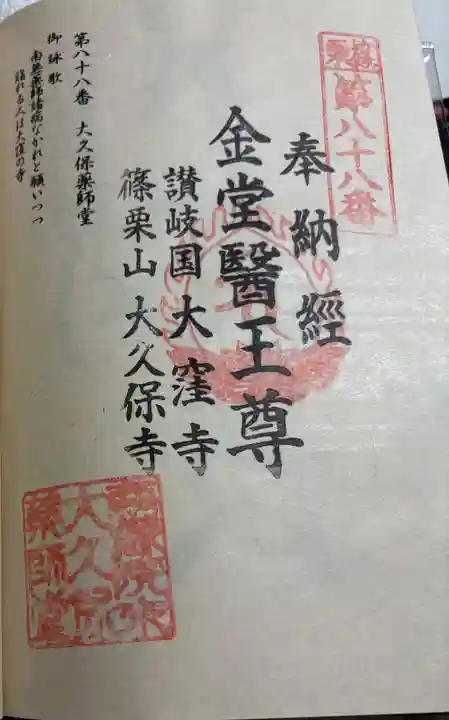 篠栗
第八十八番
奉納經
金堂醫王尊
讃岐国大窪寺
篠栗山大久保寺
大久保
薬師堂
第八十八番 大久保薬師堂
御詠歌
南無薬師諸病なかれと願いつつ
詣れる人は大窪の寺